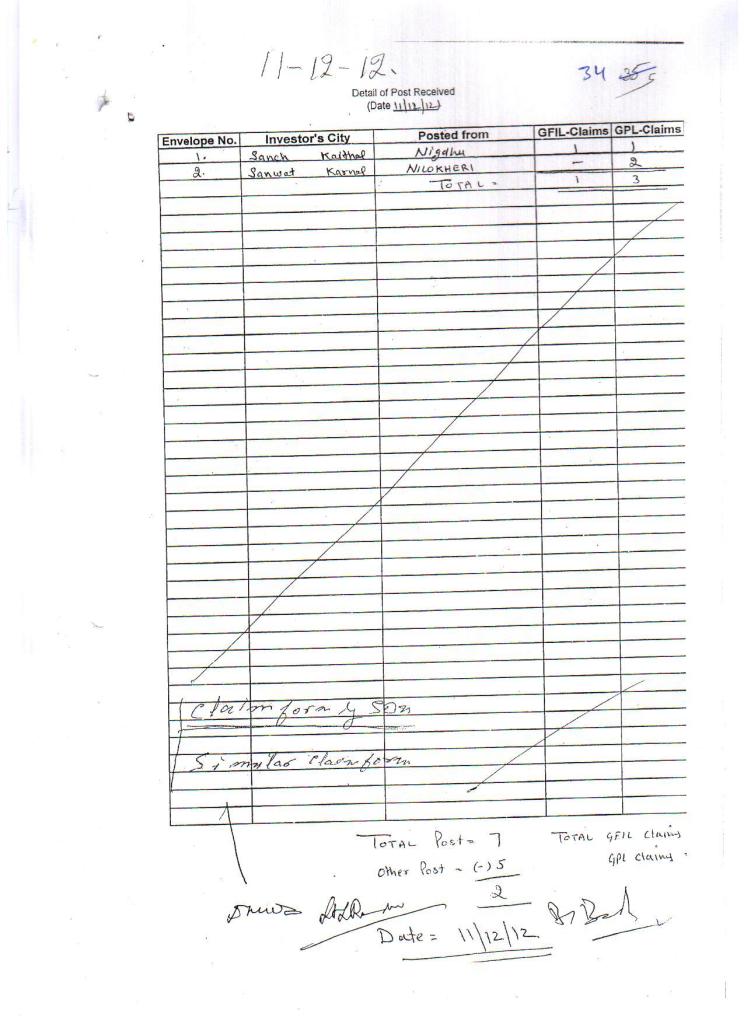 11-12-12.
34 35
Detail of Post Received
(Date 11/12/12)
Envelope No. Investor's City Posted from GFIL-Claims GPL-Claims
1. Sanch Kaithal Nigdhu 1 1
2. Sanwat Karnal NILOKHERI - 2
TOTAL = 1 3
Claim form
Similar Claim form
TOTAL Post = 7 TOTAL GFIL Claims
Other Post = (-) 5 GPL Claims
2
Date = 11/12/12